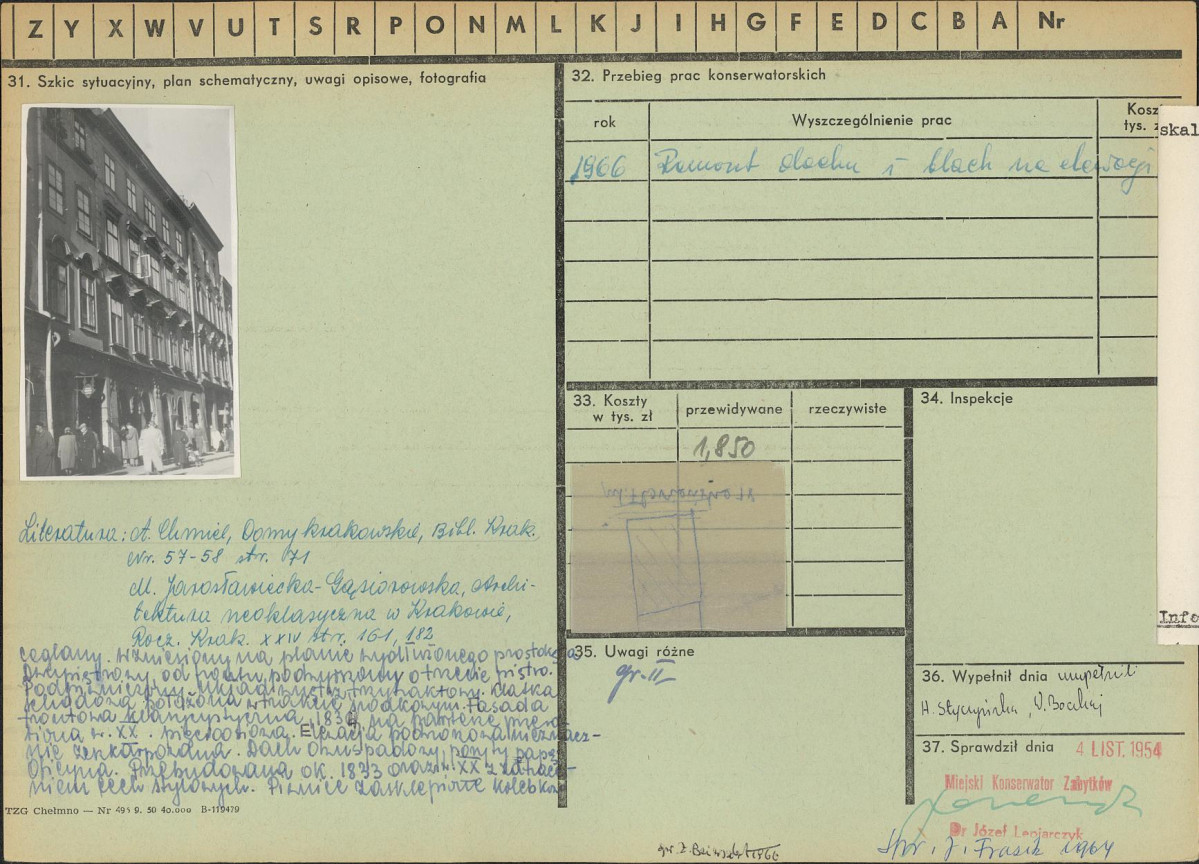 Z Y X W V U T S R P O N M L K J I H G F E D C B A Nr
31. Szkic sytuacyjny, plan schematyczny, uwagi opisowe, fotografia
Literatura: A. Chmiel, Domy krakowskie, Bibl. Krak.
Nr. 57-58 str. 71
M. Jarosławiecka-Gąsiorowska, Archi-
tektura neoklasyczna w Krakowie,
Rocz. Krak. XXIV str. 161, 182
ceglany. Wzniesiony na planie wydłużonego prostok
od podwyższony o trzecie piętro.
Podpiwniczony. Układ trzytraktowy. Klatka
schodowa położona w trakcie środkowym. Fasada
frontowa klasycystyczna, 183 na parterze
w. XX. Elewacja podwórzowa
Dach dwuspadowy, pokryty papą
Oficyna. Przebudowana ok. 1833 oraz w XX z zatrace-
niem cech stylowych. Piwnice zasklepione kolebk
TZG Chełmno — Nr 495 9. 50 40.000 B-119479
32. Przebieg prac konserwatorskich
rok Wyszczególnienie prac Kosz
tys. z
1966 Remont dachu i blach na elewacji
33. Koszty
w tys. zł przewidywane rzeczywiste
1,850
34. Inspekcje
35. Uwagi różne
gr. II
36. Wypełnił dnia uzupełnili
H. Styczyńska,
37. Sprawdził dnia 4 LIST. 1954
Miejski Konserwator Zabytków
Dr Józef Lepiarczyk
Spr. J. Frasik 1964
skal
Info